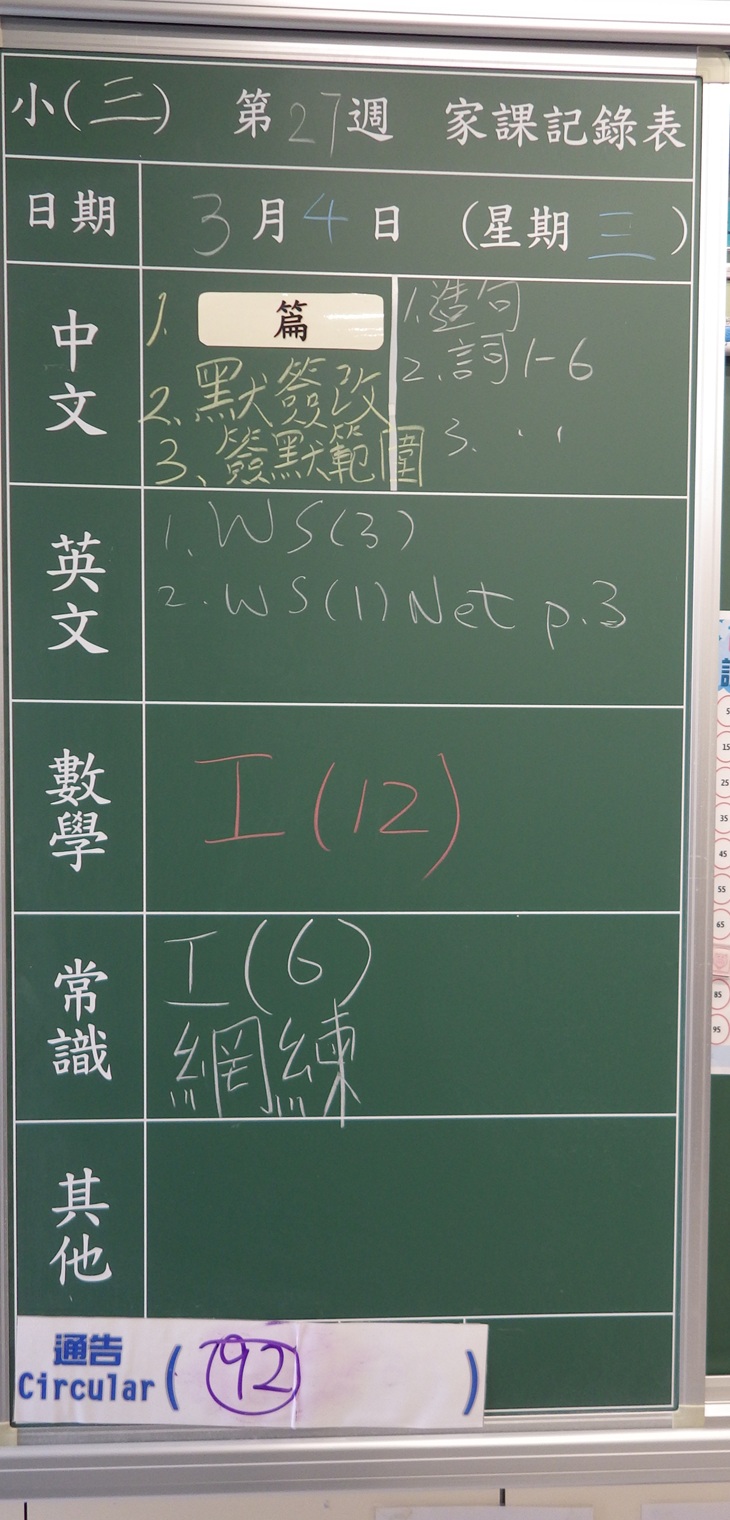 小(三) 第27週 家課記錄表
日期 3月4日 (星期三)
中文
1. 篇
2. 默簽改
3. 簽默範圍
1. 造句
2. 詞1-6
3. . . .
英文
1. WS(3)
2. WS(1) Net p.3
數學
I(12)
常識
I(6)
網練
其他
通告
Circular ( 92 )
5
15
25
35
45
55
65
85
95